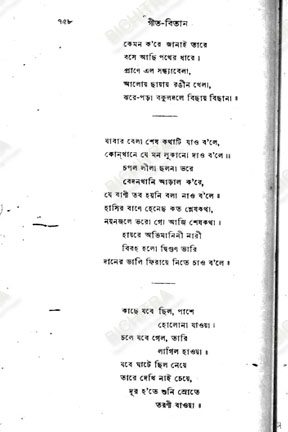 ৭৫৮ গীত-বিতান
কেমন ক'রে জানাই তারে
বসে আছি পথের ধারে।
প্রাণে এল সন্ধ্যাবেলা,
আলোয় ছায়ায় রঙীন খেলা,
ঝরে-পড়া বকুলদলে বিছায় বিছানা॥
যাবার বেলা শেষ কথাটি যাও ব'লে,
কোন্‌খানে যে মন লুকানো দাও ব'লে॥
চপল লীলা ছলনা ভরে
বেদনখানি আড়াল ক'রে,
যে বাণী তব হয়নি বলা নাও ব'লে॥
হাসির বাণে হেনেছ কত শ্লেষকথা,
নয়নজলে ভরো গো আজি শেষকথা।
হায়রে অভিমানিনী নারী
বিরহ হলো দ্বিগুণ ভারি
দানের ডালি ফিরায়ে নিতে চাও ব'লে॥
কাছে যবে ছিল, পাশে
হোলোনা যাওয়া।
চলে যবে গেল, তারি
লাগিল হাওয়া॥
যবে ঘাটে ছিল নেয়ে
তারে দেখি নাই চেয়ে,
দূর হ'তে শুনি স্রোতে
তরণী বাওয়া॥